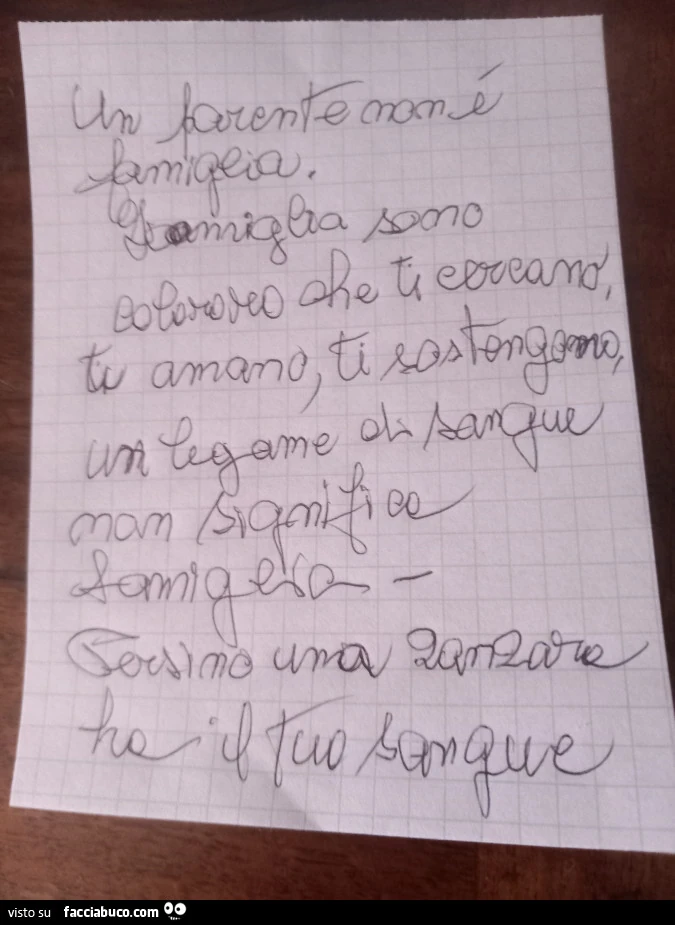 Un parente non é
famiglia.
Famiglia sono
coloro che ti cercano,
ti amano, ti sostengono,
un legame di sangue
non significa
famiglia -
Persino una zanzara
ha il tuo sangue
visto su facciabuco.com